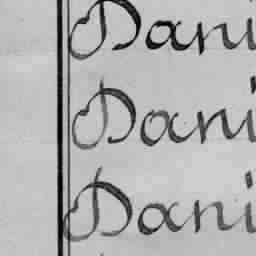 Dani
Dani
Dani